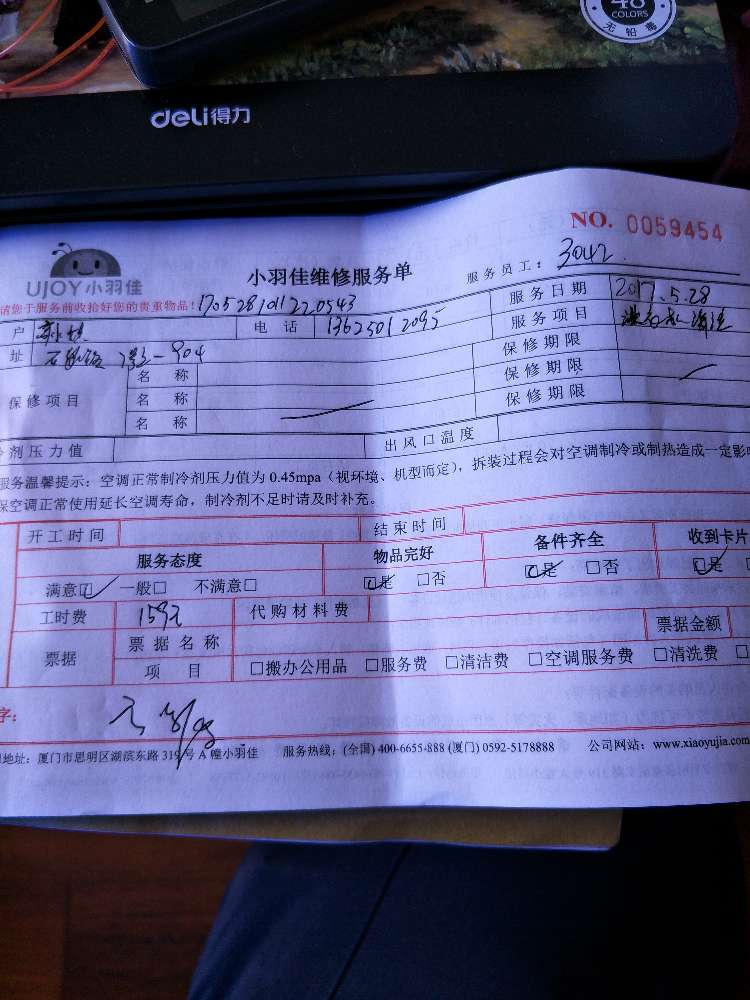 48
COLORS
无铅毒
deli得力
NO. 0059454
UJOY小羽佳
小羽佳维修服务单
服务员工： 3042
请您于服务前收拾好您的贵重物品! 1705281011220543
户 电话 13625012095 服务日期 2017.5.28
址 904 服务项目 清洗
保修项目 名称 保修期限
名称 保修期限
名称 保修期限
剂压力值 出风口温度
服务温馨提示：空调正常制冷剂压力值为 0.45mpa（视环境、机型而定），拆装过程会对空调制冷或制热造成一定影响
保空调正常使用延长空调寿命，制冷剂不足时请及时补充。
开工时间 结束时间
服务态度 物品完好 备件齐全 收到卡片
满意☑ 一般□ 不满意□ ☑是 □否 ☑是 □否 ☑是
工时费 159元 代购材料费
票据 票据名称 票据金额
项目 □搬办公用品 □服务费 □清洁费 □空调服务费 □清洗费 □
字：
地址：厦门市思明区湖滨东路 319 号 A 幢小羽佳 服务热线：(全国) 400-6655-888 (厦门) 0592-5178888 公司网站：www.xiaoyujia.com